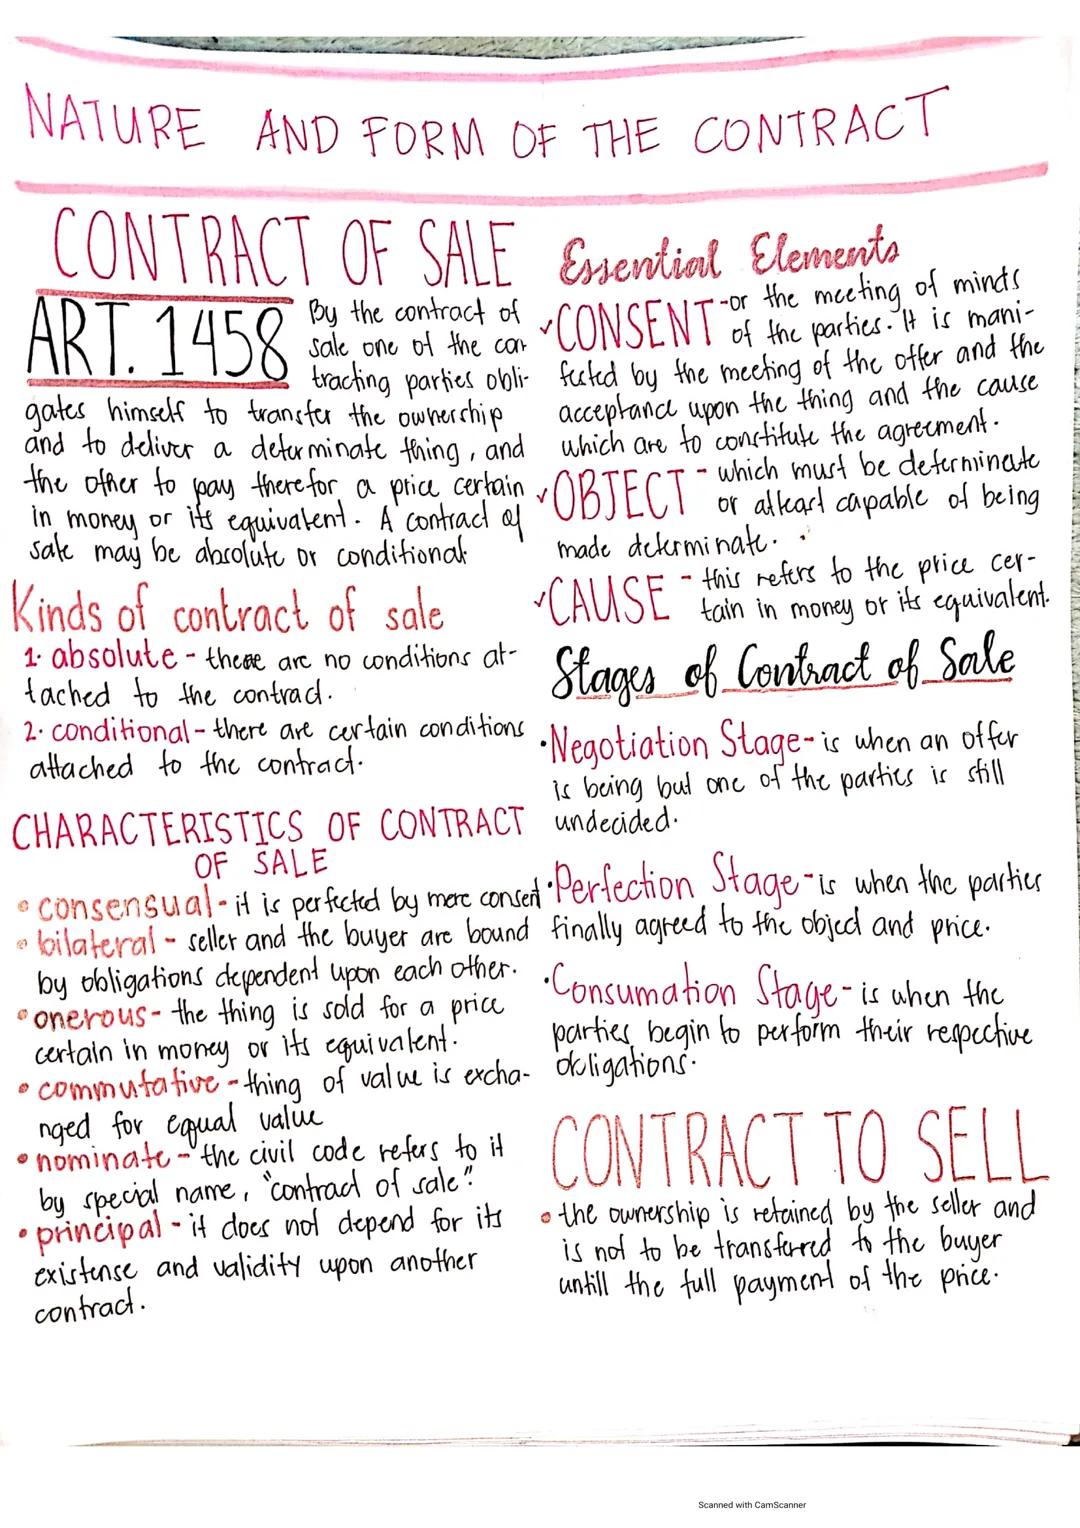 NATURE AND FORM OF THE CONTRACT
CONTRACT OF SALE
ART. 1458
By the contract of
sale one of the con
tracting parties obli-
gates himself to transfer the ownership
and to deliver a determinate thing, and
the other to pay therefor a price certain
in money or its equivalent. A contract of
sale may be absolute or conditional.
Kinds of contract of sale
1. absolute - there are no conditions at-
tached to the contract.
2. conditional - there are certain conditions
attached to the contract.
CHARACTERISTICS OF CONTRACT
OF SALE
• consensual - it is perfected by mere consent
• bilateral - seller and the buyer are bound
by obligations dependent upon each other.
• onerous - the thing is sold for a price
certain in money or its equivalent.
• commutative - thing of value is excha-
nged for equal value
• nominate - the civil code refers to it
by special name, "contract of sale".
• principal - it does not depend for its
existense and validity upon another
contract.
Essential Elements
✓CONSENT - or the meeting of minds
of the parties. It is mani-
fested by the meeting of the offer and the
acceptance upon the thing and the cause
which are to constitute the agreement.
✓OBJECT - which must be determinate
or atleast capable of being
made determinate.
✓CAUSE - this refers to the price cer-
tain in money or its equivalent.
Stages of Contract of Sale
• Negotiation Stage - is when an offer
is being but one of the parties is still
undecided.
• Perfection Stage - is when the parties
finally agreed to the object and price.
• Consumation Stage - is when the
parties begin to perform their respective
obligations.
CONTRACT TO SELL
• the ownership is retained by the seller and
is not to be transferred to the buyer
untill the full payment of the price.
Scanned with CamScanner